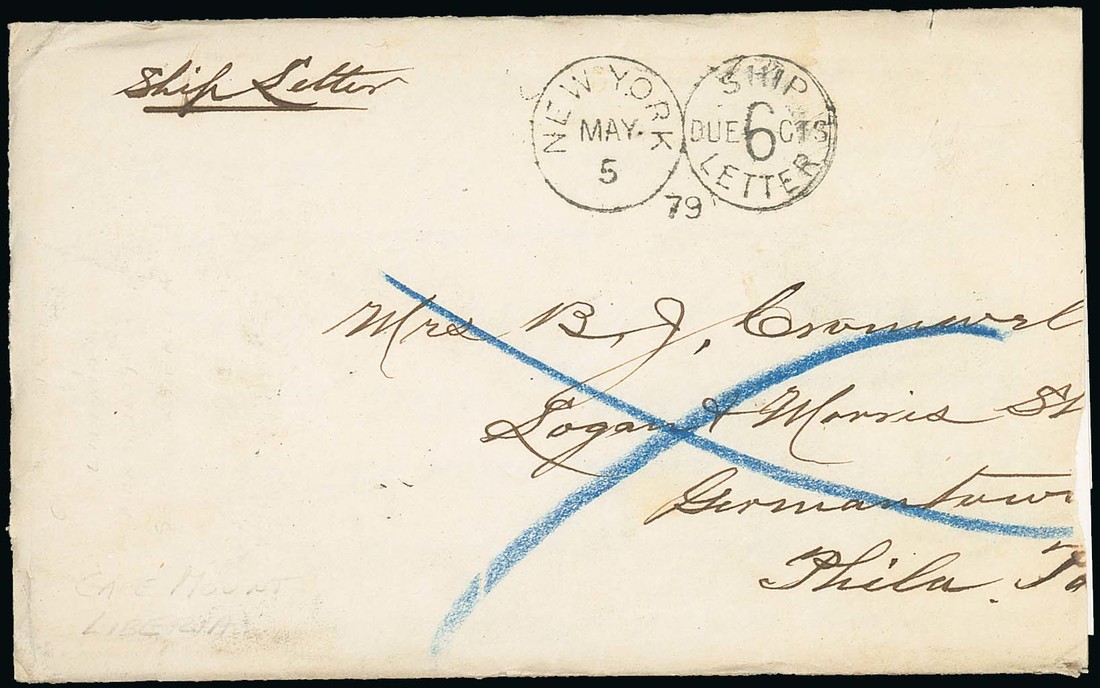 Ship Letter
NEW YORK
MAY.
5
79
SHIP
DUE 6 CTS
LETTER
Mrs B. J. Cromwel
Logan & Morris St
Germantown
Phila. Pa
CAPE MOUNT
LIBERIA